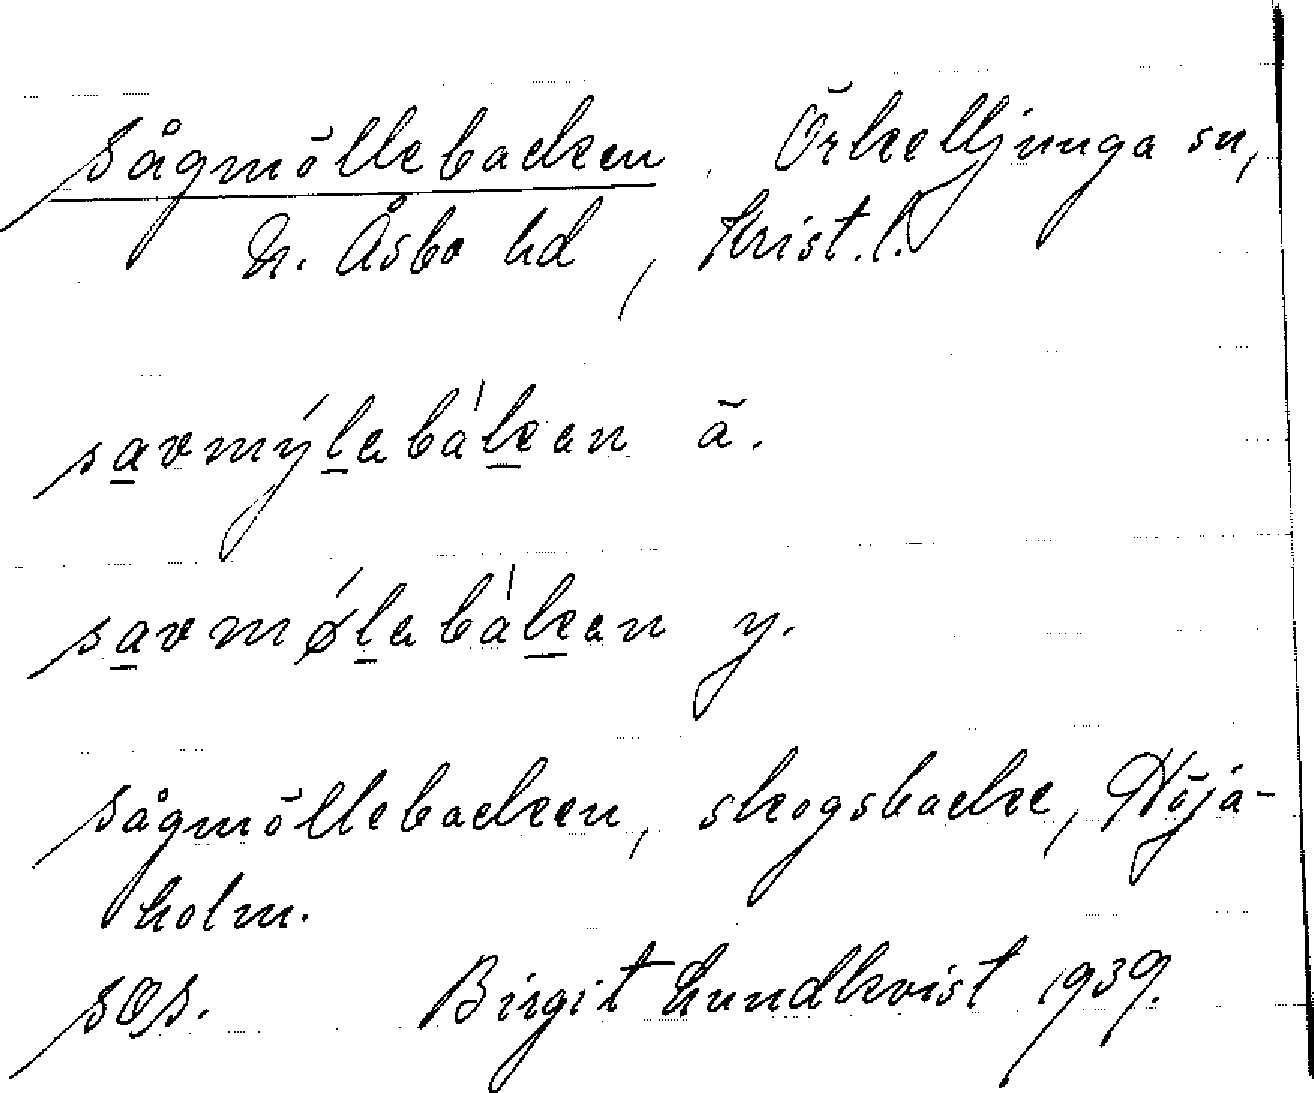 Sågmöllebacken. Örkelljunga sn,
N. Åsbo hd, Krist. l.
sa̲vmýl̲ebák̲'en ä.
sa̲vmǿl̲ebák̲'en y.
Sågmöllebacken, skogsbacke, Höja-
holm.
sOs. Birgit Lundkvist 1939.